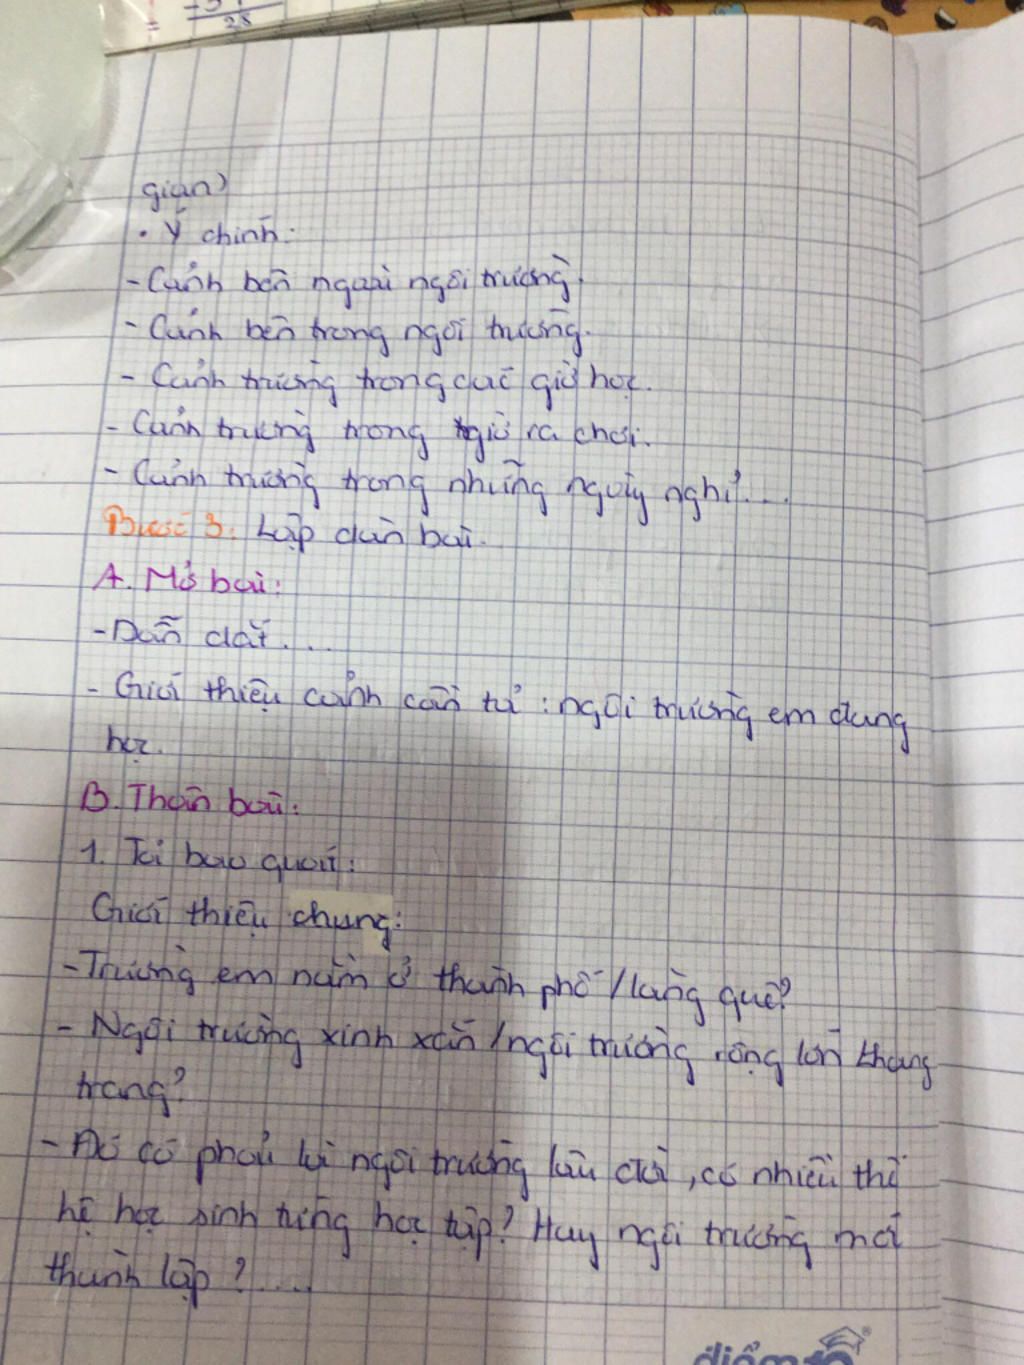 28
gian)
• Ý chính:
- Cảnh bên ngoài ngôi trường.
- Cảnh bên trong ngôi trường.
- Cảnh trường trong các giờ học.
- Cảnh trường trong giờ ra chơi.
- Cảnh trường trong những ngày nghỉ....
Bước 3: Lập dàn bài.
A. Mở bài:
- Dẫn dắt....
- Giới thiệu cảnh cần tả : ngôi trường em đang
học.
B. Thân bài:
1. Tả bao quát:
Giới thiệu chung:
- Trường em nằm ở thành phố / làng quê?
- Ngôi trường xinh xắn / ngôi trường rộng lớn khang
trang?
- Đó có phải là ngôi trường lâu đời, có nhiều thế
hệ học sinh từng học tập? Hay ngôi trường mới
thành lập ?....
điểm 10